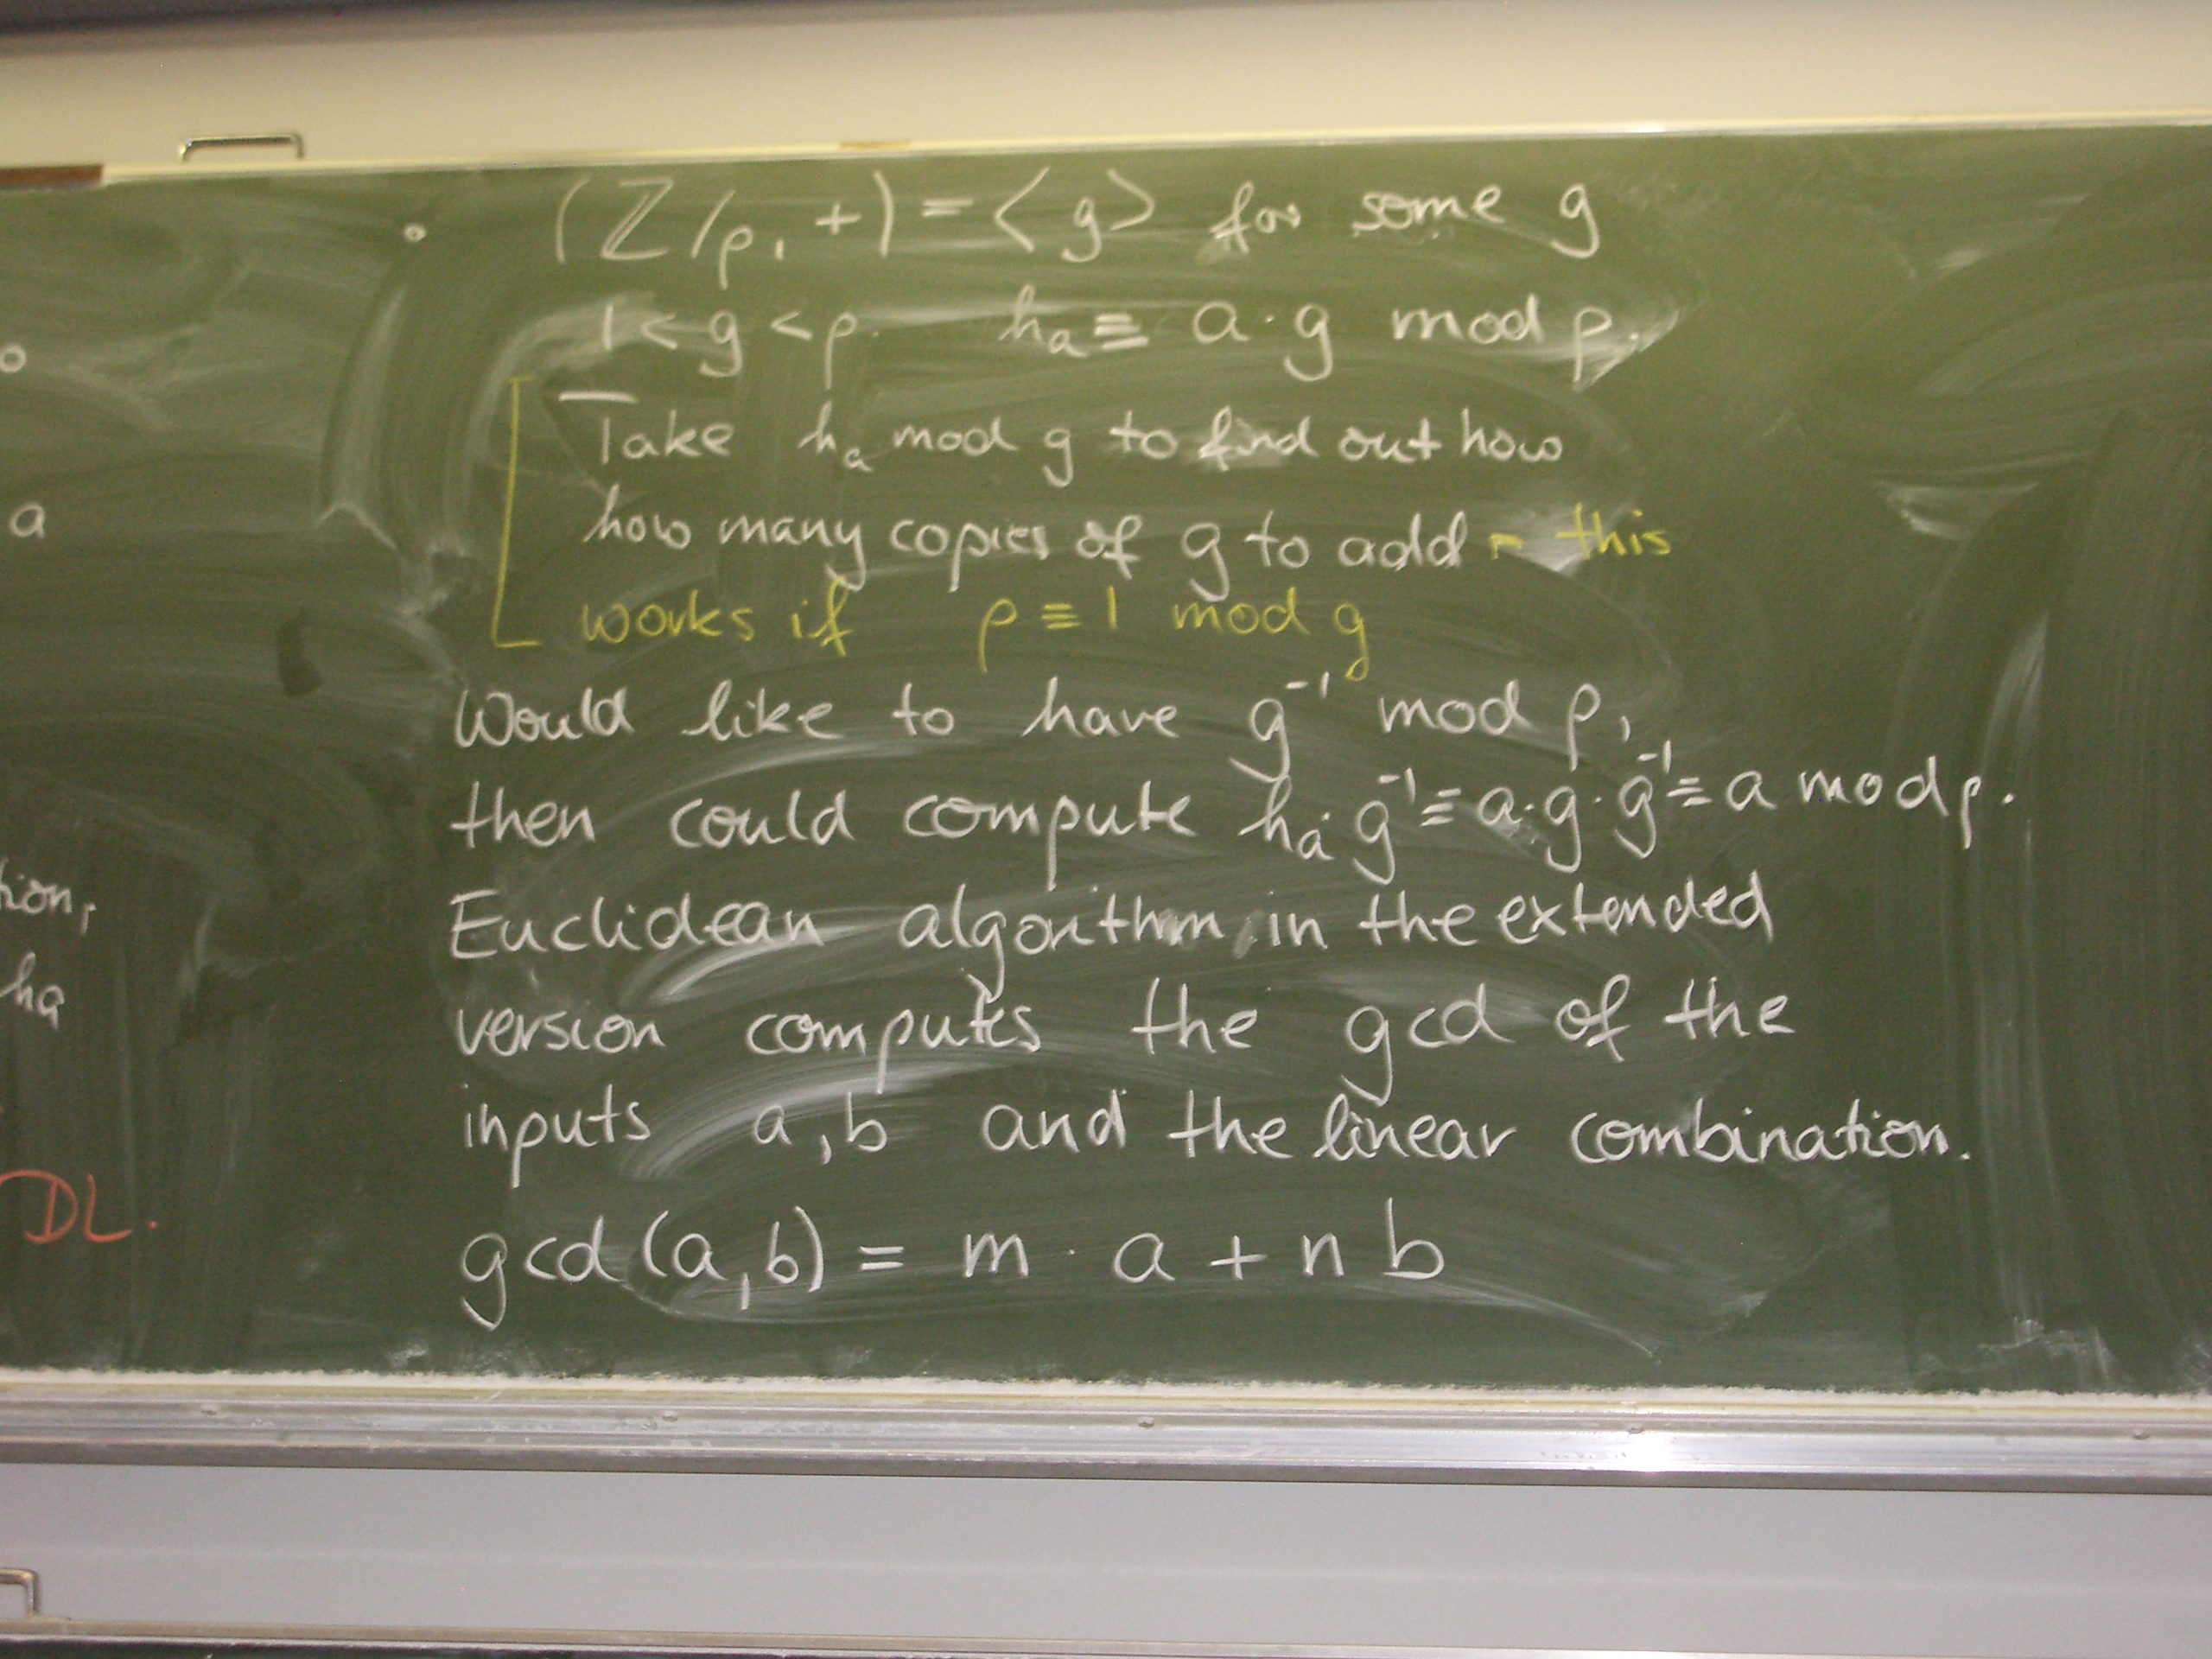 o
a
tion,
ha
DL.
• (ℤ/p, +) = <g> for some g
1 < g < p. hₐ ≡ a · g mod p.
Take hₐ mod g to find out how
how many copies of g to add - this
works if p ≡ 1 mod g
Would like to have g⁻¹ mod p,
then could compute hₐ · g⁻¹ ≡ a · g · g⁻¹ ≡ a mod p.
Euclidean algorithm in the extended
version computes the gcd of the
inputs a, b and the linear combination.
gcd (a, b) = m · a + n b